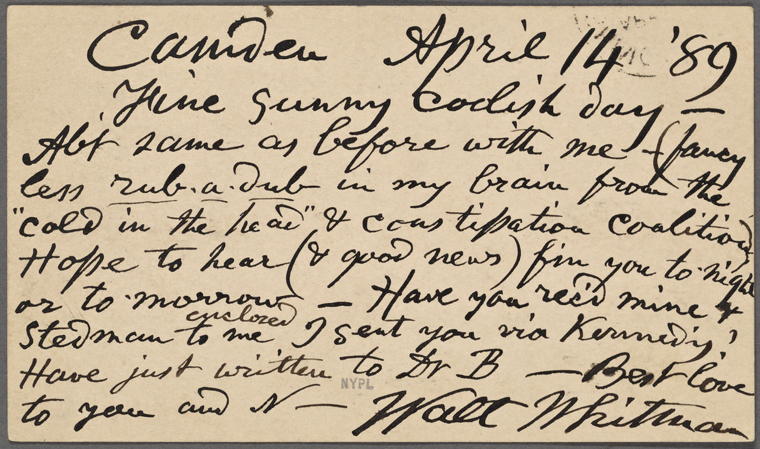 Camden April 14 '89
Fine sunny coolish day —
Ab't same as before with me — (fancy
less rub-a-dub in my brain from the
"cold in the head" & constipation coalition)
Hope to hear (& good news) f'm you to-night
or to-morrow — Have you rec'd mine &
enclosed
Stedman to me I sent you via Kennedy?
Have just written to Dr B — Best love
NYPL
to you and N — Walt Whitman